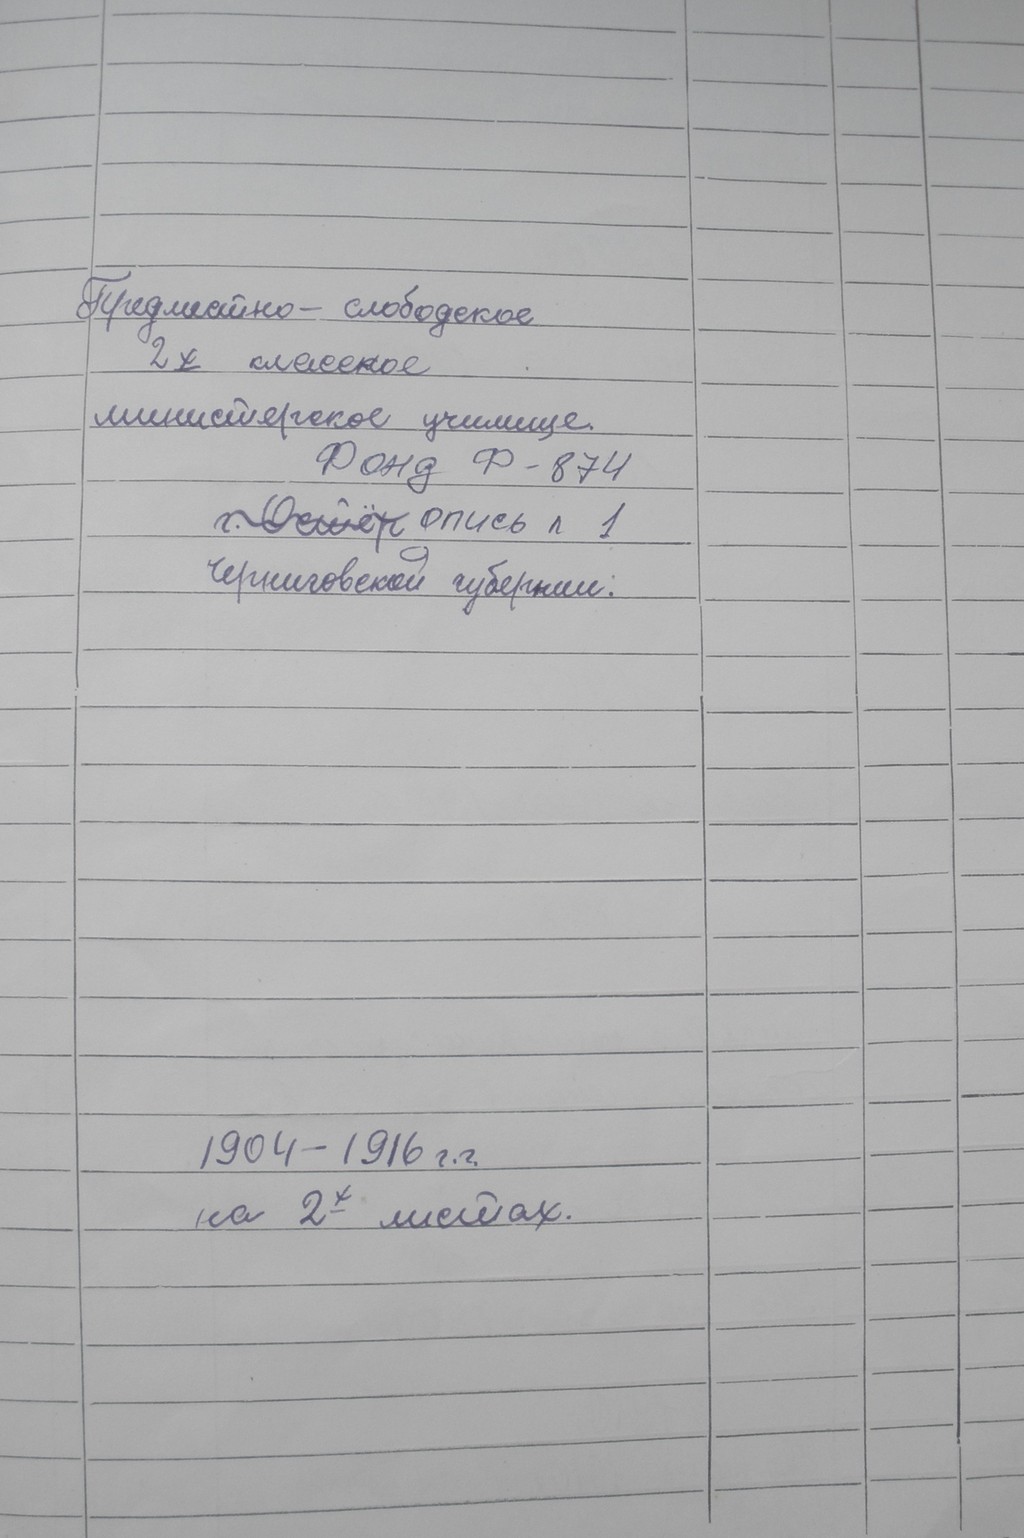 Предместно - слободское
2х класское
министерское училище.
Фонд Ф - 874
г. Остёр опись л 1
Черниговской губернии.
1904 - 1916 г.г.
на 2х листах.